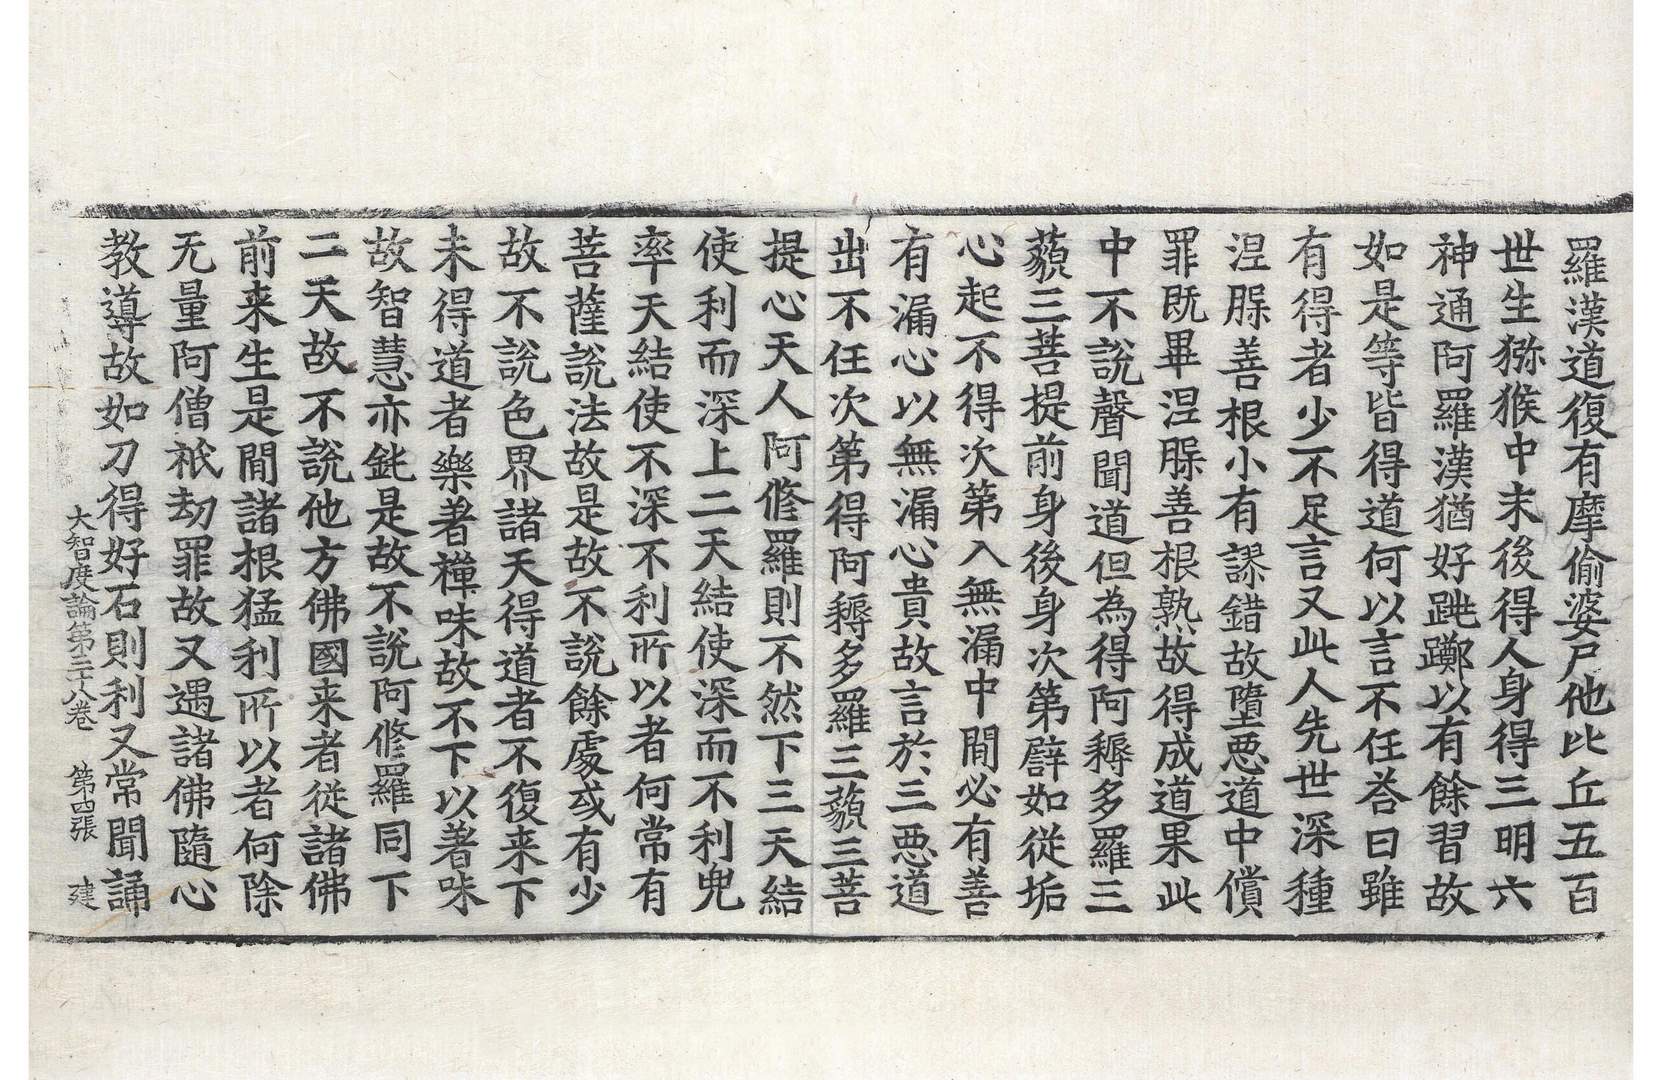 羅漢道復有摩偷婆尸他比丘五百
世生猕猴中末後得人身得三明六
神通阿羅漢猶好跳躑以有餘習故
如是等皆得道何以言不任荅曰雖
有得者少不足言又此人先世深種
涅槃善根小有謬錯故墮悪道中償
罪既畢涅槃善根熟故得成道果此
中不說聲聞道但為得阿耨多羅三
藐三菩提前身後身次第辟如從垢
心起不得次第入無漏中間必有善
有漏心以無漏心貴故言於三悪道
出不任次第得阿耨多羅三藐三菩
提心天人阿修羅則不然下三天結
使利而深上二天結使深而不利兜
率天結使不深不利所以者何常有
菩薩說法故是故不說餘處或有少
故不說色界諸天得道者不復来下
未得道者樂著禪味故不下以著味
故智慧亦鈍是故不說阿修羅同下
二天故不說他方佛國来者從諸佛
前来生是間諸根猛利所以者何除
无量阿僧祇劫罪故又遇諸佛隨心
教導故如刀得好石則利又常聞誦
大智度論第三十八卷 第四張 建